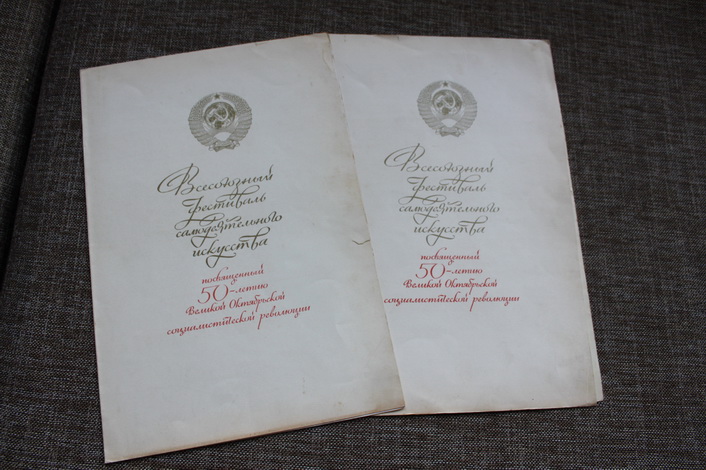 Всесоюзный
фестиваль
самодеятельного
искусства
посвященный
50-летию
Великой Октябрьской
социалистической революции
Всесоюзный
фестиваль
самодеятельного
искусства
посвященный
50-летию
Великой Октябрьской
социалистической революции